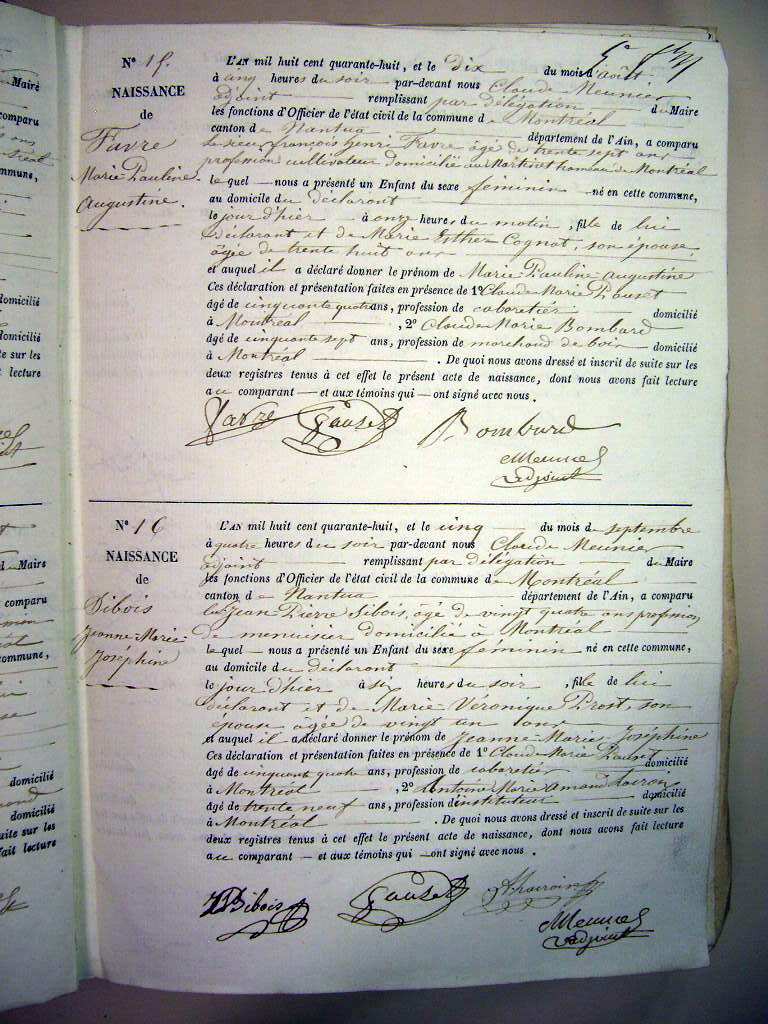 N° 15.
NAISSANCE
de
Favre
Marie Pauline
Augustine.
L'AN mil huit cent quarante-huit, et le dix du mois d'août
à cinq heures du soir par-devant nous Claude Meunier
adjoint remplissant par délégation du Maire
les fonctions d'Officier de l'état civil de la commune de Montréal
canton de Nantua département de l'Ain, a comparu
le sieur françois henri Favre âgé de trente sept ans
profession cultivateur domicilié au Martinet hameau de Montréal
le quel nous a présenté un Enfant du sexe feminin né en cette commune,
au domicile du déclarant
le jour d'hier à onze heures du matin, fille de lui
déclarant et de Marie Esther Cognat, son épouse,
âgée de trente huit ans
et auquel il a déclaré donner le prénom de Marie Pauline Augustine
Ces déclaration et présentation faites en présence de 1° Claude Marie Pauset
âgé de cinquante quatre ans, profession de cabaretier domicilié
à Montréal, 2° Claude Marie Bombard
âgé de cinquante sept ans, profession de marchand de bois domicilié
à Montréal. De quoi nous avons dressé et inscrit de suite sur les
deux registres tenus à cet effet le présent acte de naissance, dont nous avons fait lecture
au comparant et aux témoins qui ont signé avec nous.
Favre Pauset Bombard
Meunier
adjoint
N° 16
NAISSANCE
de
Sibois
Jeanne Marie
Joséphine
L'AN mil huit cent quarante-huit, et le cinq du mois de septembre
à quatre heures du soir par-devant nous Claude Meunier
adjoint remplissant par délégation du Maire
les fonctions d'Officier de l'état civil de la commune de Montréal
canton de Nantua département de l'Ain, a comparu
le Jean Pierre Sibois, âgé de vingt quatre ans profession
de menuisier domicilié à Montréal
le quel nous a présenté un Enfant du sexe feminin né en cette commune,
au domicile du déclarant
le jour d'hier à six heures du soir, fille de lui
déclarant et de Marie Véronique Prost, son
épouse âgée de vingt un ans
et auquel il a déclaré donner le prénom de Jeanne Marie Joséphine
Ces déclaration et présentation faites en présence de 1° Claude Marie Pauset
âgé de cinquante quatre ans, profession de cabaretier domicilié
à Montréal, 2° Antoine Marie Amand
âgé de trente neuf ans, profession d'instituteur domicilié
à Montréal. De quoi nous avons dressé et inscrit de suite sur les
deux registres tenus à cet effet le présent acte de naissance, dont nous avons fait lecture
au comparant et aux témoins qui ont signé avec nous.
Sibois Pauset
Meunier
adjoint